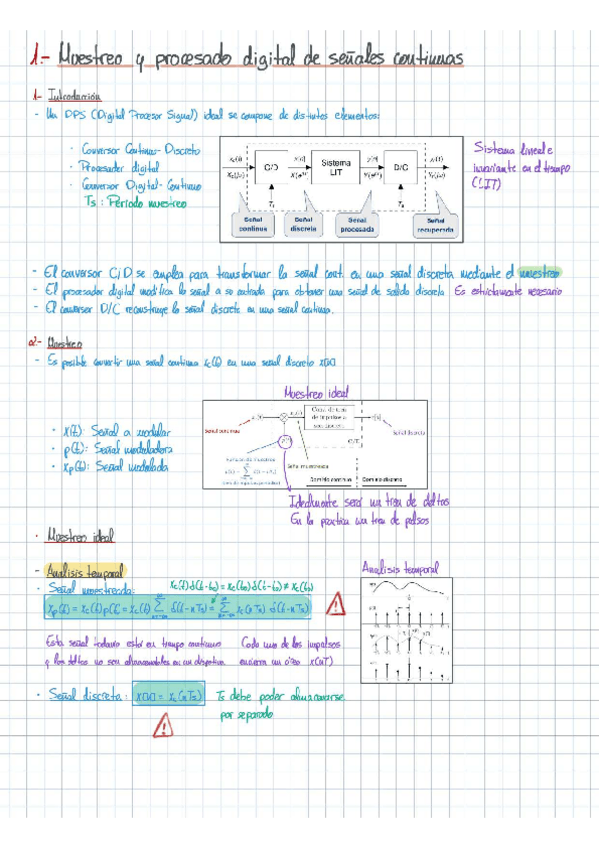 1.- Muestreo y procesado digital de señales continuas
1- Introducción
- Un DPS (Digital Procesor Signal) ideal se compone de distintos elementos:
· Conversor Continuo-Discreto
· Procesador digital
· Conversor Digital-Continuo
Ts: Período muestreo
x_c(t) x[n] y[n] y_r(t)
C/D Sistema LIT D/C
Señal continua Señal discreta Señal procesada Señal recuperada
Sistema lineal e
invariante en el tiempo
(LIT)
- El conversor C/D se emplea para transformar la señal cont. en una señal discreta mediante el muestreo
- El procesador digital modifica la señal a su entrada para obtener una señal de salida discreta Es estrictamente necesario
- El conversor D/C reconstruye la señal discreta en una señal continua.
2- Muestreo
- Es posible convertir una señal continua x_c(t) en una señal discreta x[n]
Muestreo ideal
Señal continua
Señal discreta
Señal muestreada
Dominio continuo Dominio discreto
· x(t): Señal a modular
· p(t): Señal moduladora
· x_p(t): Señal modulada
Idealmente será un tren de deltas
En la práctica un tren de pulsos
· Muestreo ideal
- Análisis temporal
Análisis temporal
· Señal muestreada: x_c(t) δ(t-t_0) = x_c(t_0) δ(t-t_0) ≠ x_c(t_0)
x_p(t) = x_c(t) p(t) = x_c(t) Σ δ(t-nTs) = Σ x_c(nTs) δ(t-nTs)
Esta señal todavía está en tiempo continuo Cada uno de los impulsos
y las deltas no son almacenables en un dispositivo encierra un área x(nT)
· Señal discreta: x[n] = x_c(nTs) Ts debe poder almacenarse
por separado